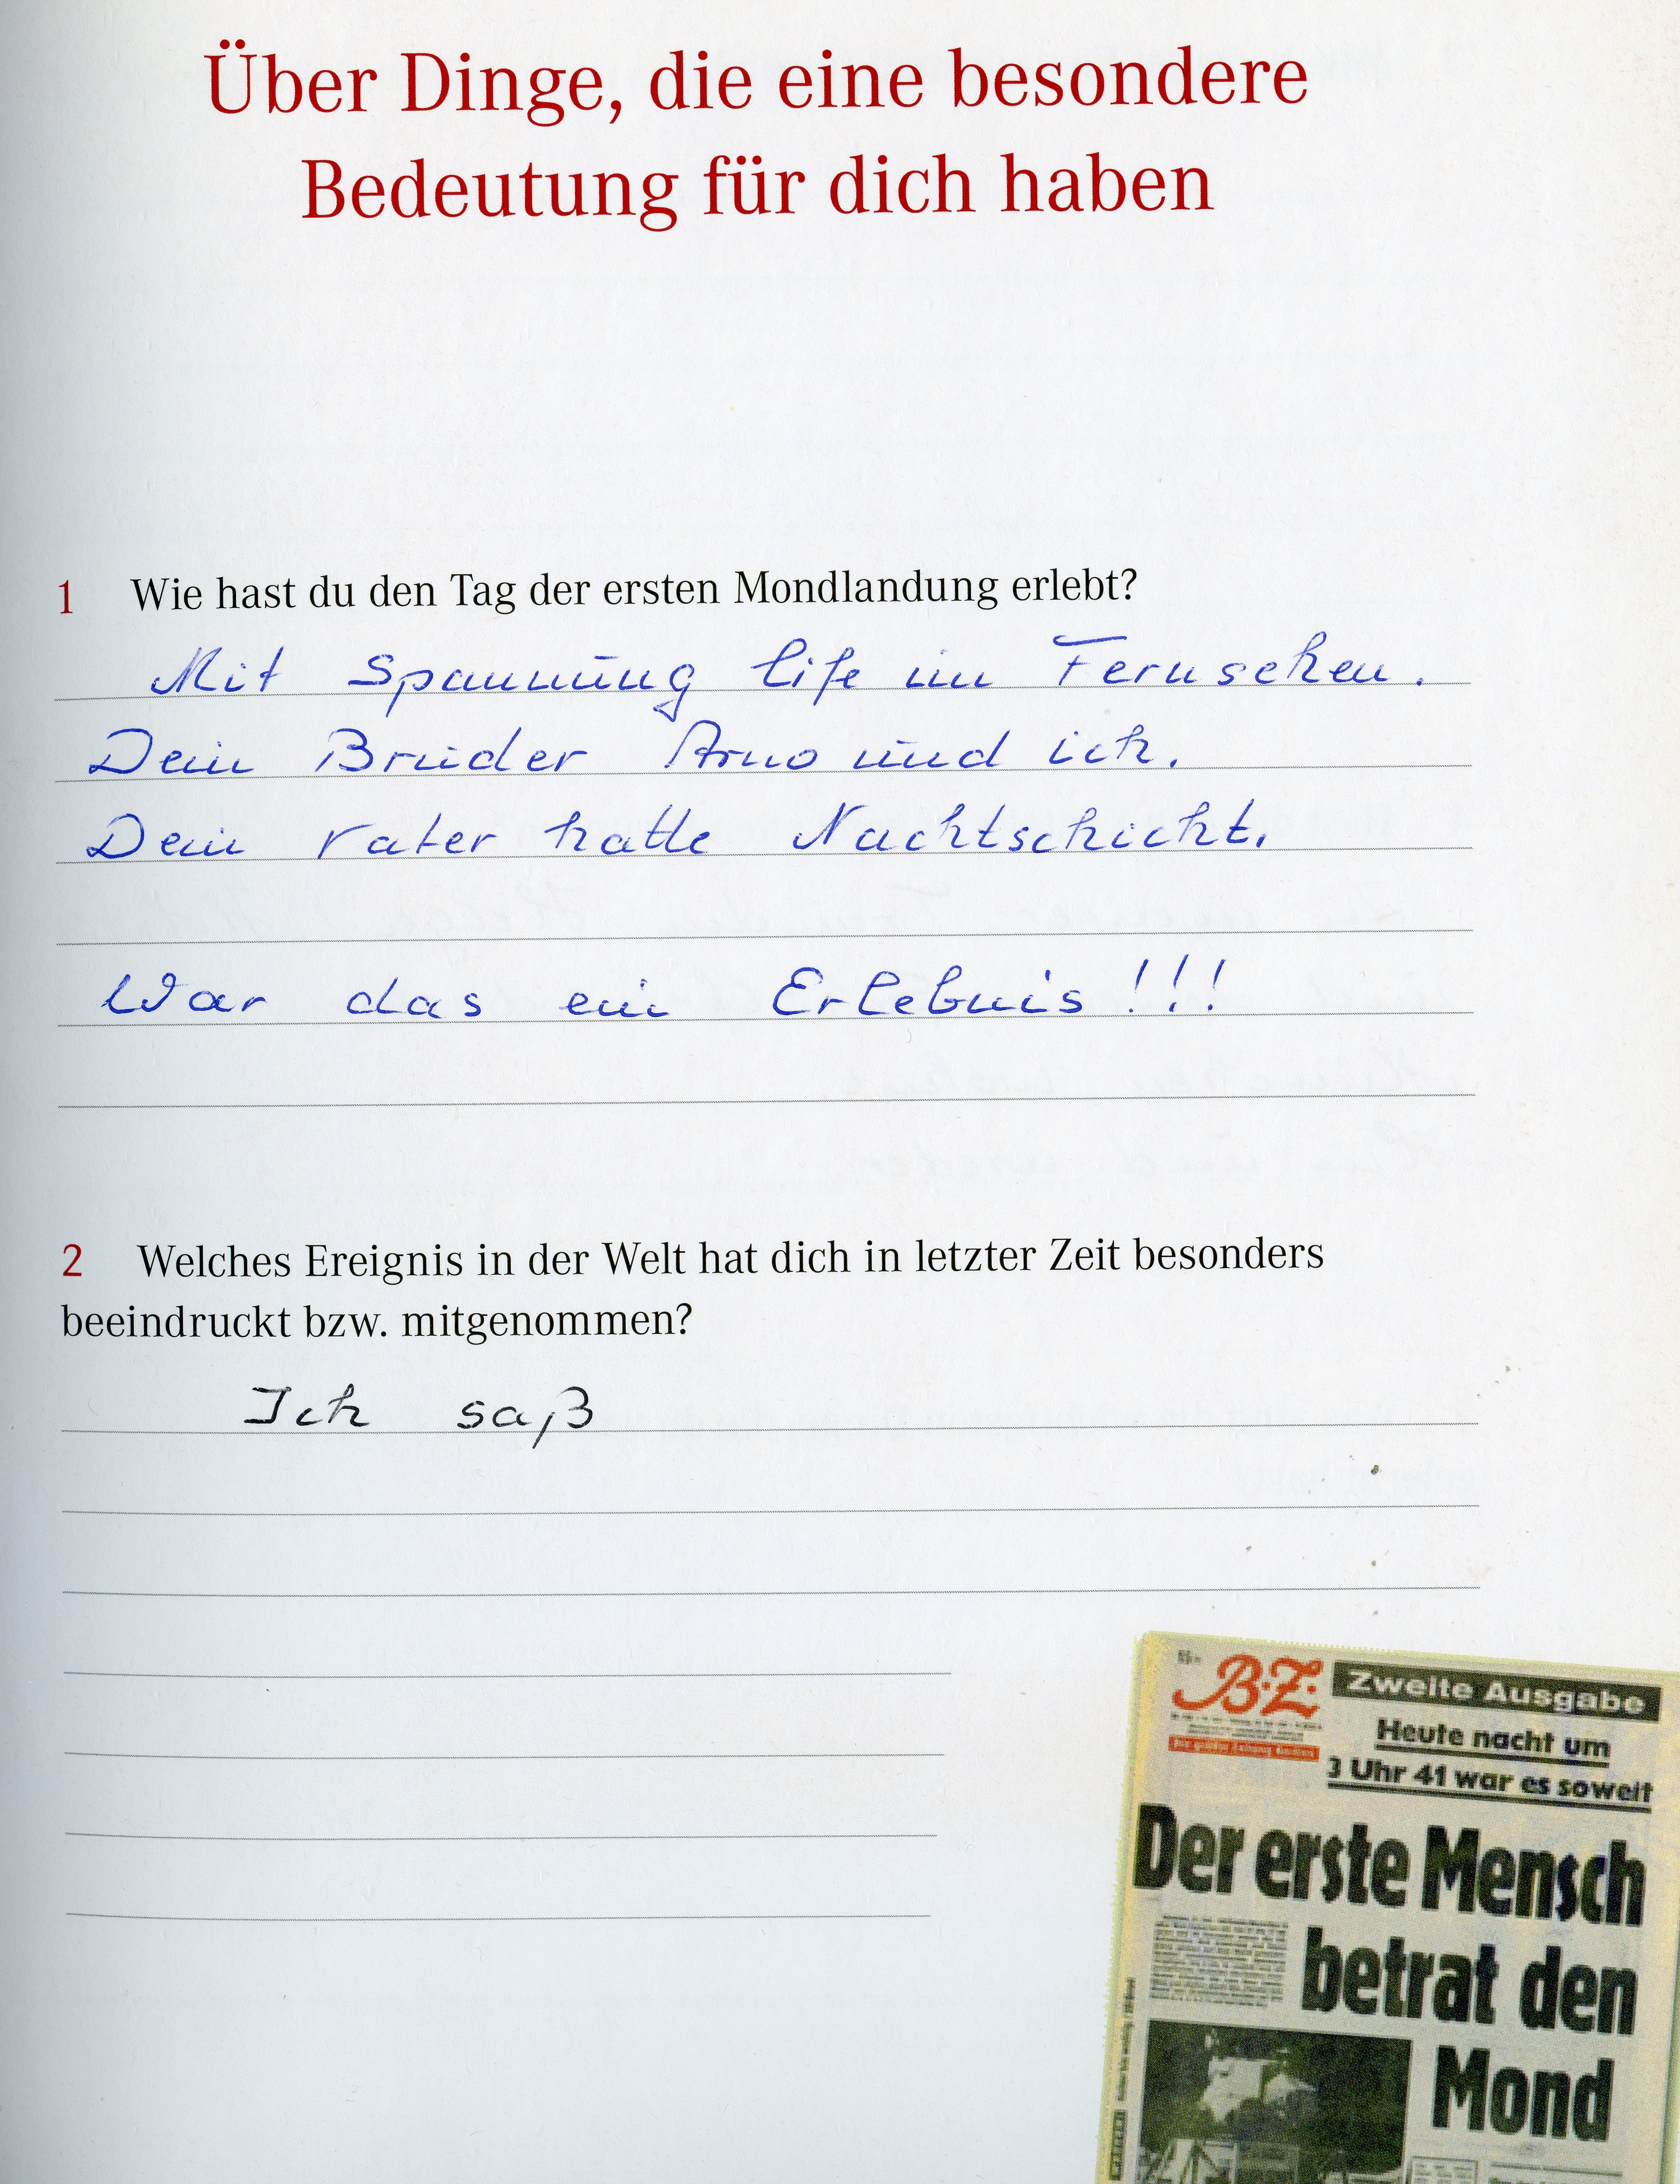 Über Dinge, die eine besondere
Bedeutung für dich haben
1 Wie hast du den Tag der ersten Mondlandung erlebt?
Mit Spannung life im Fernsehen.
Dein Bruder Arno und ich.
Dein Vater hatte Nachtschicht.
War das ein Erlebnis!!!
2 Welches Ereignis in der Welt hat dich in letzter Zeit besonders
beeindruckt bzw. mitgenommen?
Ich saß
B.Z.
Zweite Ausgabe
Heute nacht um
3 Uhr 41 war es soweit
Der erste Mensch
betrat den
Mond